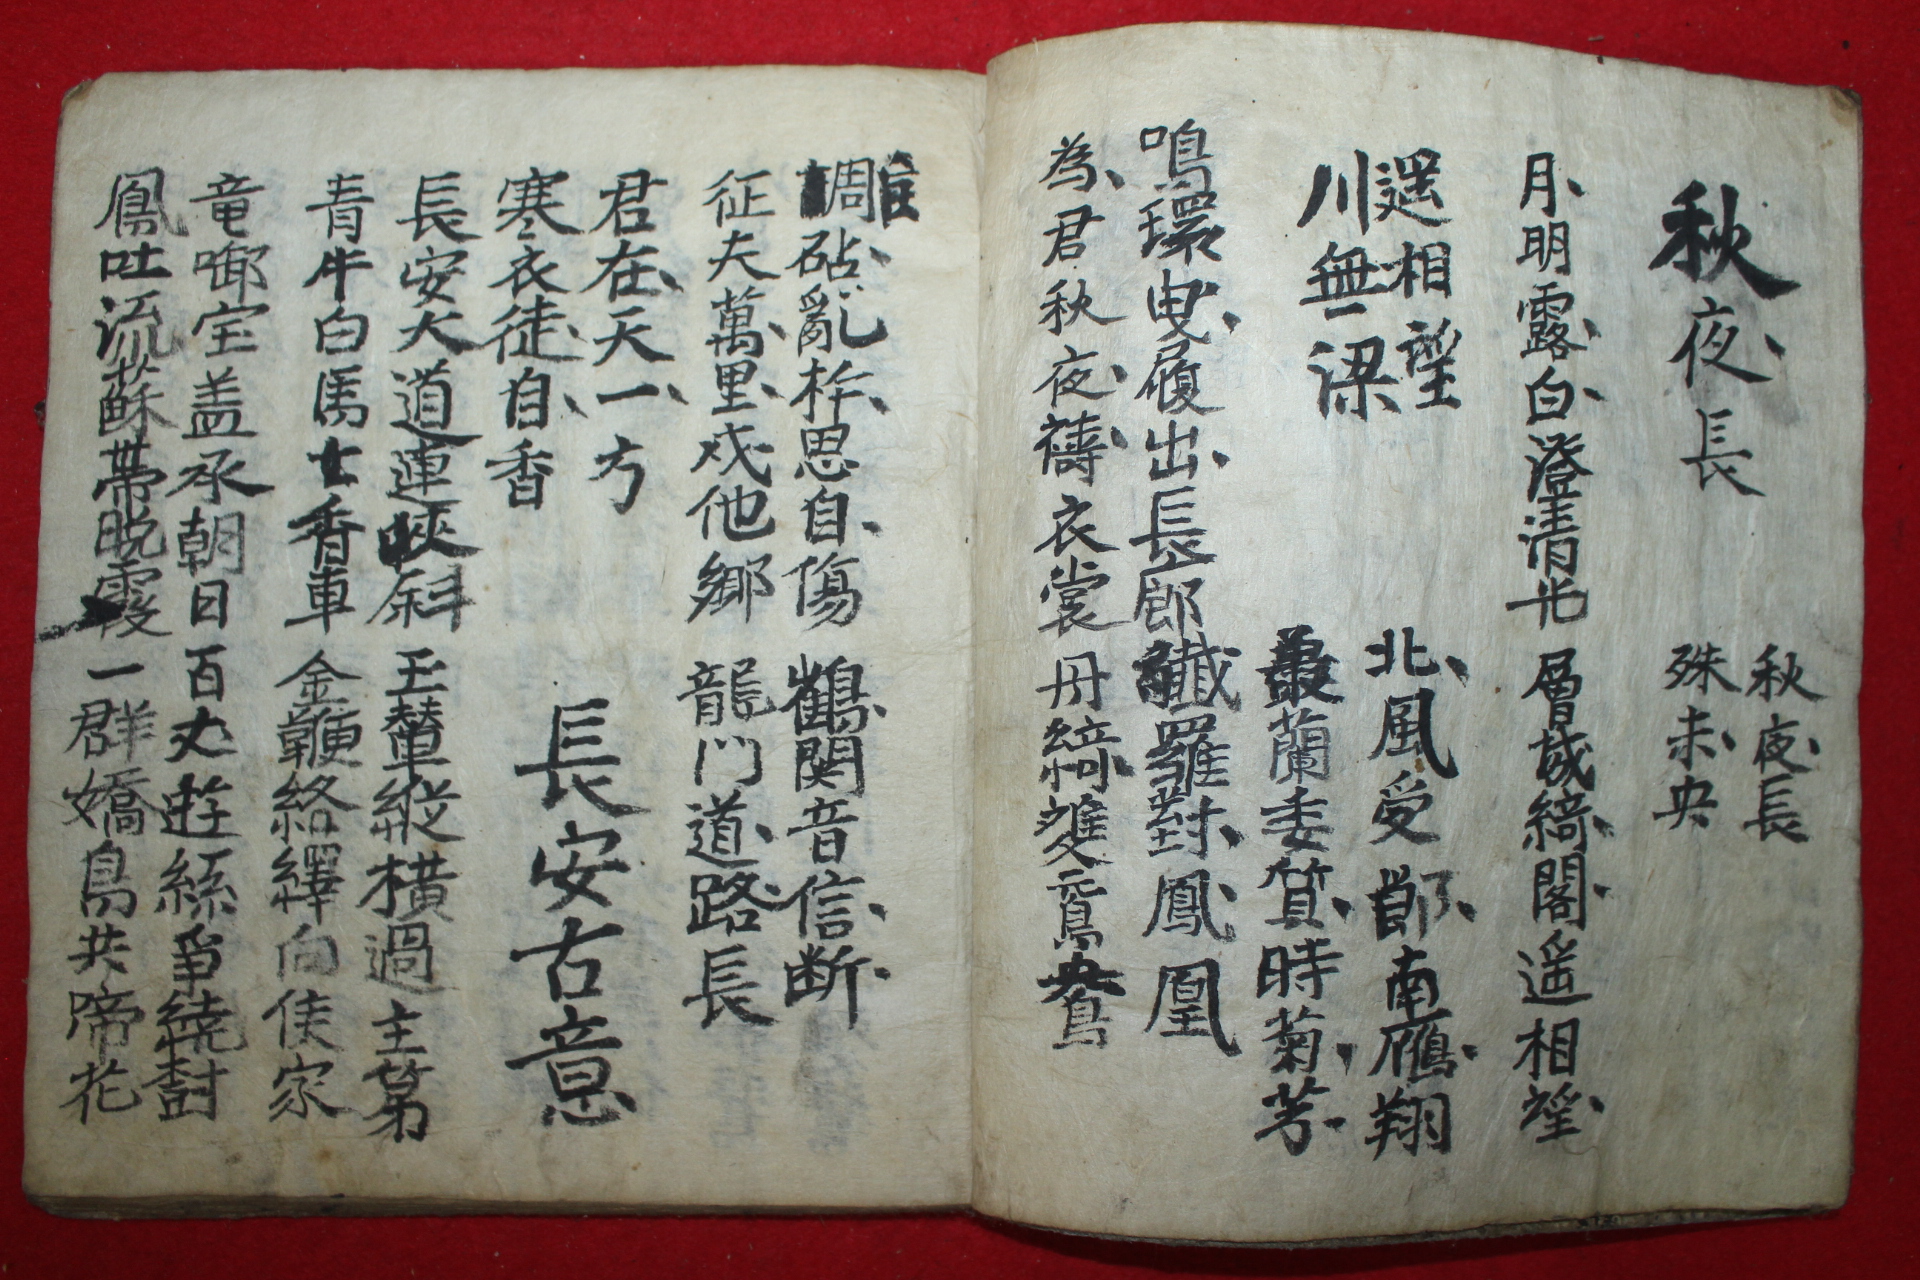 秋夜長
秋夜長
殊未央
月明露白澄清光 層城綺閣遥相望
遥相望
川無梁
北風受節南雁翔
叢蘭委質時菊芳
鳴環曳履出長廊 纖羅對鳳凰
為君秋夜擣衣裳 丹綺雙鴛鴦
調砧亂杵思自傷 鶴関音信断
征夫萬里戍他鄉 龍门道路長
君在天一方
寒衣徒自香
長安古意
長安大道連狹斜 玉輦縱橫過主第
青牛白馬七香車 金鞭絡繹向侯家
竜啣宝盖承朝日 百丈遊絲争繞樹
鳳吐流蘇帶晩霞 一群嬌鳥共啼花